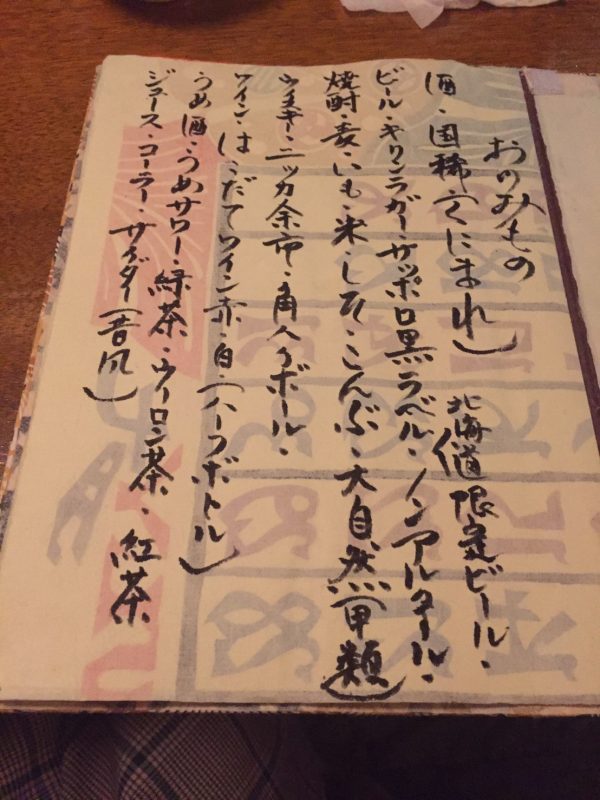 おのみもの
酒・国稀(くにまれ)
北海道限定ビール・
ビール・キリンラガー・サッポロ黒ラベル・ノンアルコール・
焼酎・麦・いも・米・しそ・こんぶ・大自然(甲類)
ウイスキー・ニッカ余市・角ハイボール・
ワイン・はこだてワイン赤・白(ハーフボトル)
うめ酒・うめサワー・緑茶・ウーロン茶・紅茶
ジュース・コーラー・サイダー(昔風)